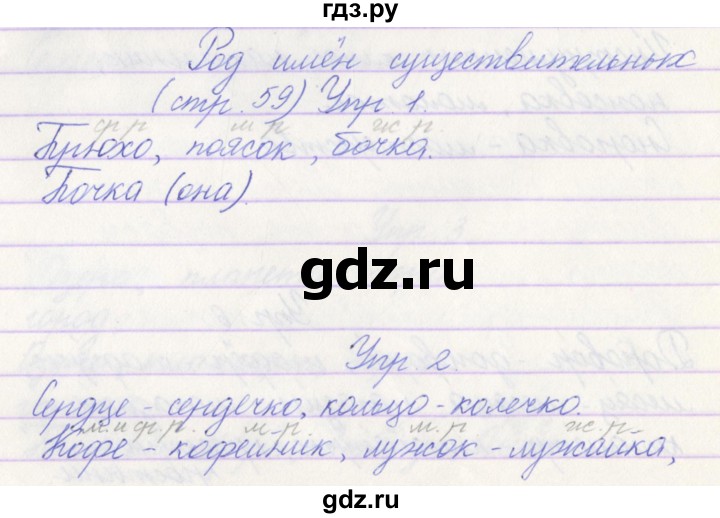 гдз.ру
Род имён существительных
(стр. 59) Упр 1.
ср р. м. р ж. р.
Брюхо, поясок, бочка.
Бочка (она).
gdz.ru
Упр. 2.
Сердце - сердечко, кольцо - колечко.
м. и ср. р. м. р. м. р ж. р.
Кофе - кофейник, лужок - лужайка,
gdz.ru